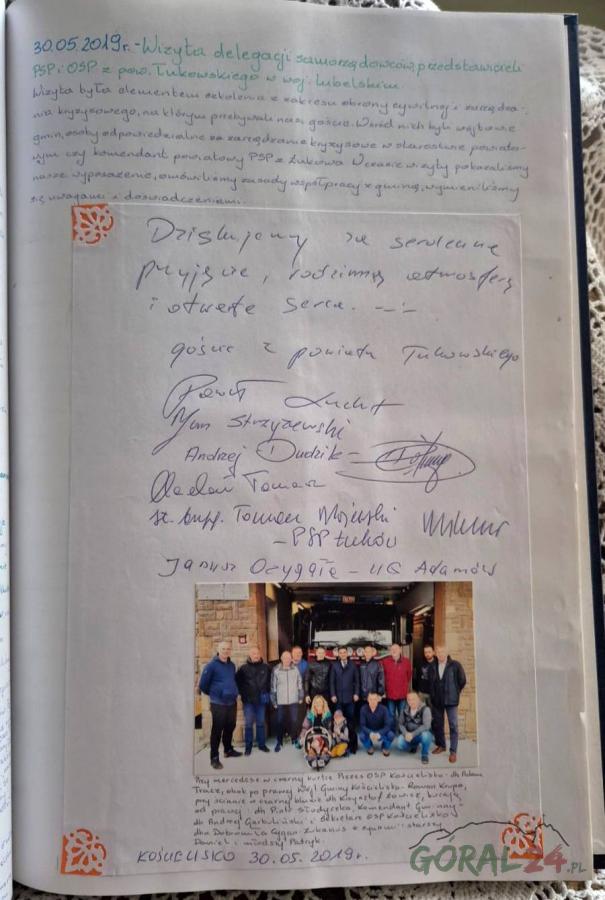 30.05.2019r. - Wizyta delegacji samorządowców, przedstawicieli
PSP i OSP z pow. Łukowskiego w woj. lubelskim.
Wizyta była elementem szkolenia z zakresu obrony cywilnej i zarządza-
nia kryzysowego, na którym przebywali nasi goście. Wśród nich byli wójtowie
gmin, osoby odpowiedzialne za zarządzanie kryzysowe w starostwie powiato-
wym czy komendant powiatowy PSP z Łukowa. W czasie wizyty pokazaliśmy
nasze wyposażenie, omówiliśmy zasady współpracy z gminą, wymieniliśmy
się uwagami i doświadczeniami.
Dziękujemy za serdeczne
przyjęcie, rodzinną atmosferę
i otwarte serca.
goście z powiatu Łukowskiego
Paweł
Jan Strzyżewski
Andrzej Dudzik
Tomasz
st. bryg. Tomasz Majewski
- PSP Łuków
Janusz - UG Adamów
Przy mercedesie w czarnej kurtce Prezes OSP Kościelisko - dh Adam
Tracz, obok po prawej Wójt Gminy Kościelisko - Roman Krupa,
przy ścianie w czarnej bluzie dh Krzysztof, kucają
od prawej: dh Piotr, Komendant Gminny
dh Andrzej i Sekretarz OSP Kościelisko
dhna Dobromiła Cygan z synami: starszy
Daniel i młodszy Patryk.
KOŚCIELISKO 30.05.2019r.
GORAL24.PL